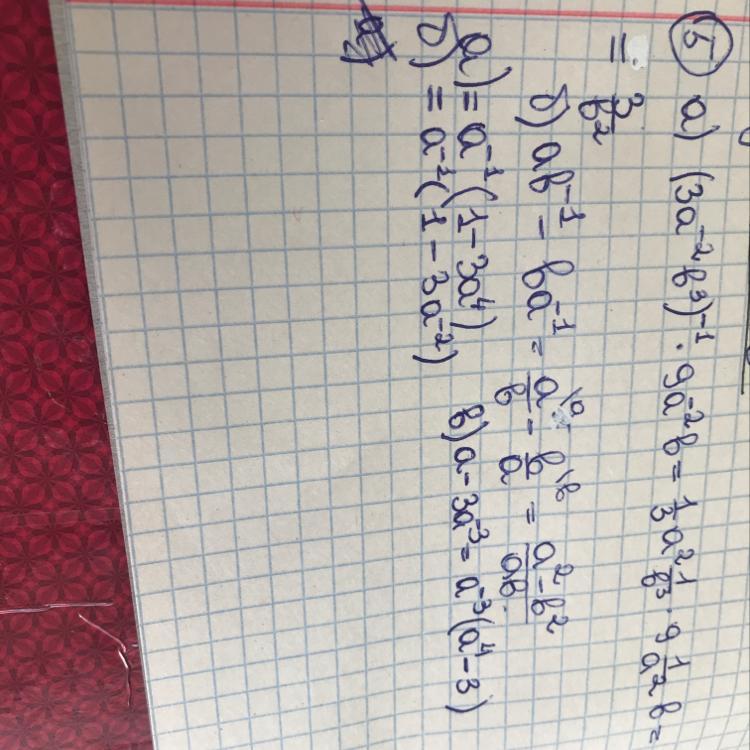 ⑤ а) (3a⁻²b³)⁻¹ · 9a⁻²b = 1/3 a² 1/b³ · 9 1/a² b =
= 3/b²
б) ab⁻¹ − ba⁻¹ = a\a/b − b\b/a = a²−b²/ab
а) = a⁻¹(1−3a⁴)
б) = a⁻¹(1−3a⁻²)
в) a−3a⁻³ = a⁻³(a⁴−3)